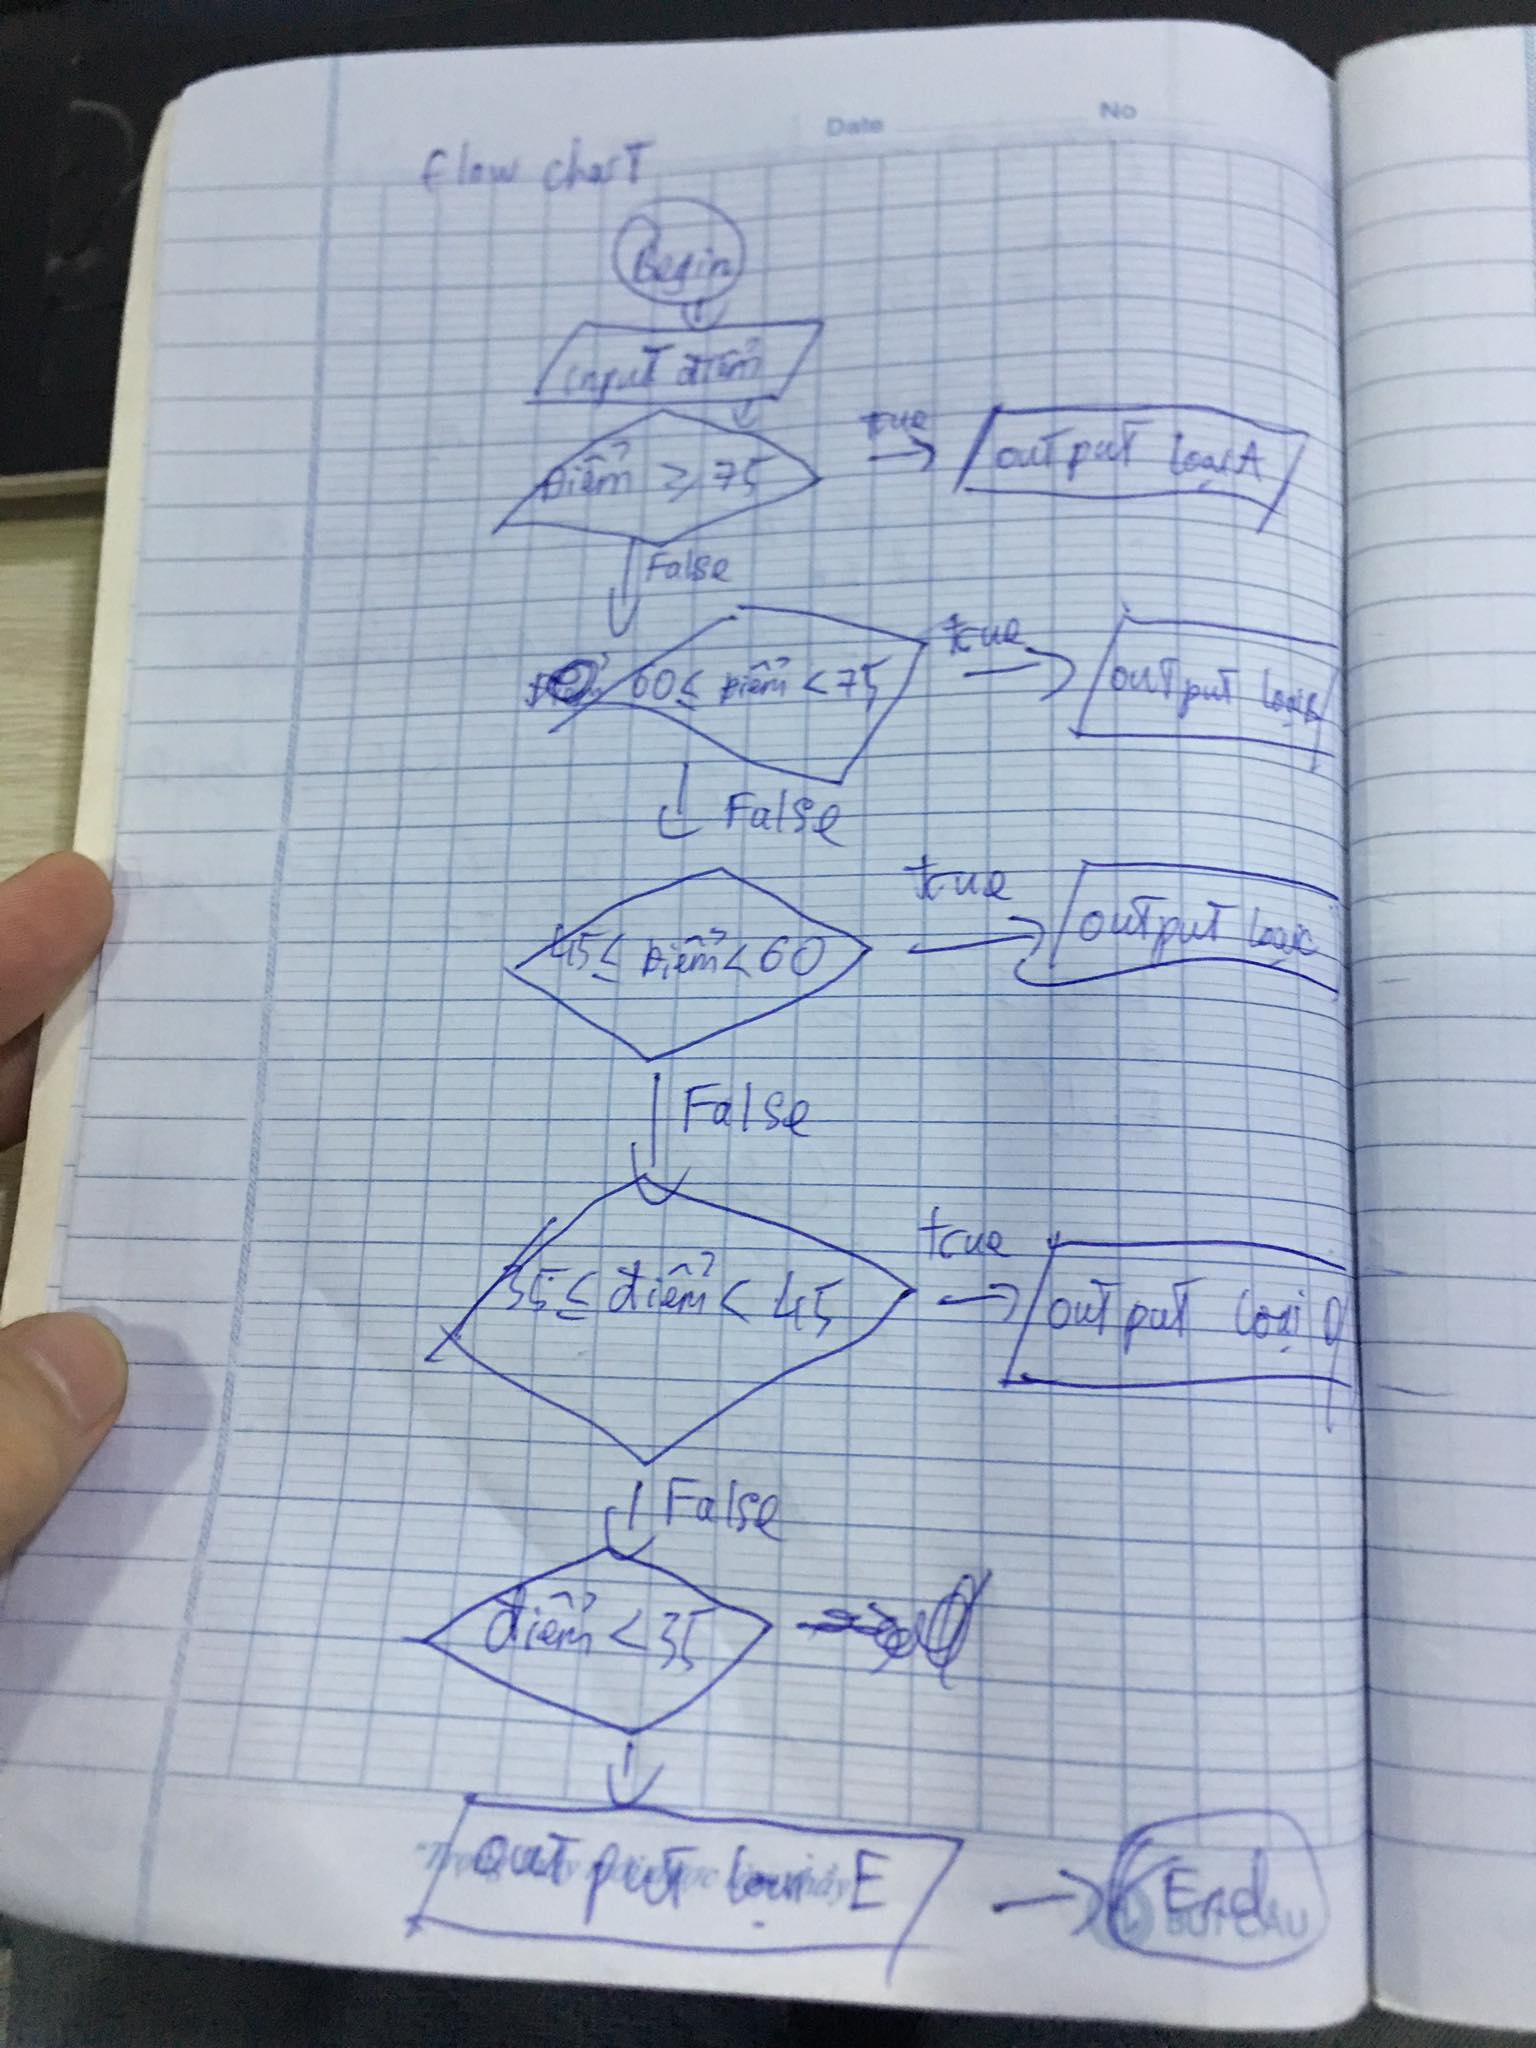 Date No
flow chart
Begin
input điểm
Điểm ≥ 75
true
output loại A
False
60 ≤ Điểm < 75
true
output loại B
False
45 ≤ Điểm < 60
true
output loại C
False
35 ≤ điểm < 45
true
output loại D
False
điểm < 35
output loại E
End